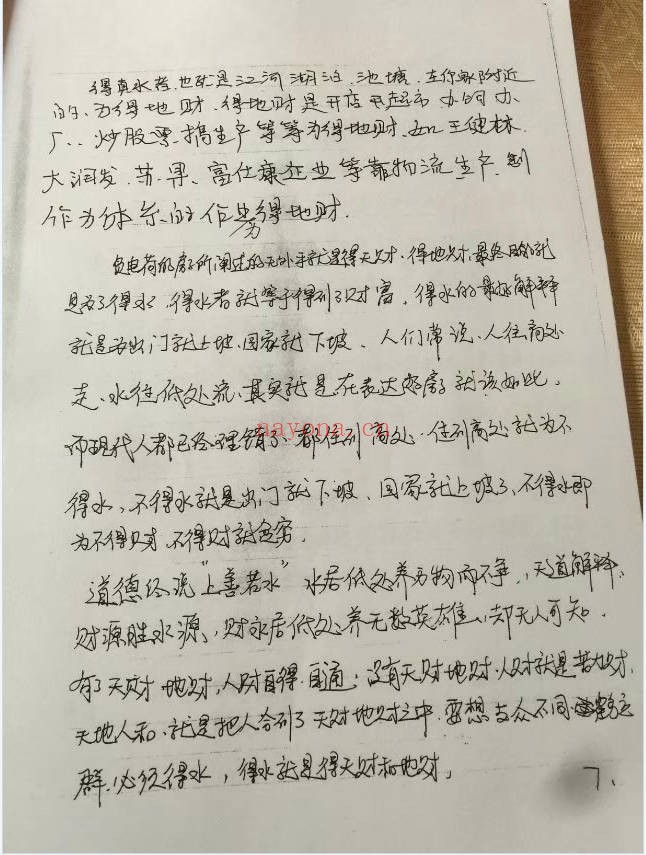 得真水者.也就是江河湖泊.池塘.在你家附近
的.为得地财.得地财是开店开超市办的办
厂..炒股票.搞生产等等为得地财.如王健林.
大润发.苏果、富仕康企业等靠物流生产.制
作为体系的作业为得地财.
负电荷的房所阐述的无外乎就是得天财.得地财.最终目的就
是为了得水.得水者就等于得到了财富.得水的最好解释
就是为出门就上坡.回家就下坡、人们常说.人往高处
走、水往低处流、其实就是在表达房就该如此.
而现代人都已经理错了、都住到高处.住到高处就为不
nayona.cn
得水,不得水就是出门就下坡、回家就上坡了、不得水即
为不得财.不得财就会穷.
道德经说"上善若水"水居低处养万物而不争,天道解释、
财源胜水源、财水居低处养无数英雄、却无人可知.
有了天财地财,人财自得.自通;没有天财地财.人财就是苦力财.
天地人和.就是把人合到了天财地财之中.要想与众不同.超运
群.必须得水,得水就是得天财和地财.
7.